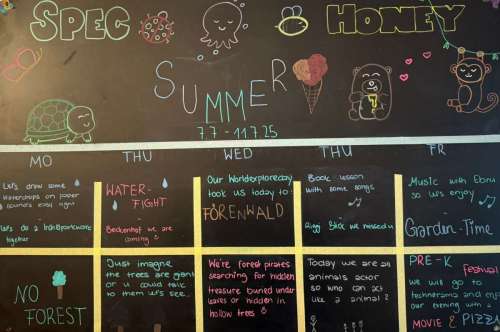 SPEC HONEY
SUMMER
7.7 - 11.7.25
MO THU WED THU FR
Let's draw some
waterdrops on paper
sounds easy right
Let's do a transportparcours
together
WATER-
FIGHT
Beckenhof we are
coming
Our Worldexploreday
took us today to
FÖRENWALD
Book lesson
with some songs
Rigi Blick we missed u
Music with Ebru
so let's enjoy
Garden-Time
NO
FOREST
Just imagine
the trees are giant
or u could talk
to them let's see...
We're forest pirates
searching for hidden
treasure buried under
leaves or hidden in
hollow trees
Today we are all
animals actor
so who can act
like a animal?
PRE-K festival
We will go to
technorama and enjoy
our evening with a
MOVIE & PIZZA